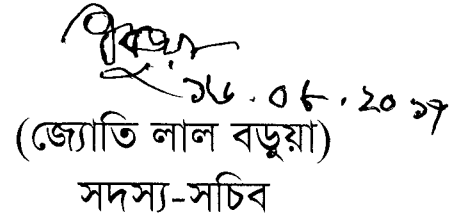 ১৬.০৮.২০১৭
(জ্যোতি লাল বড়ুয়া)
সদস্য-সচিব